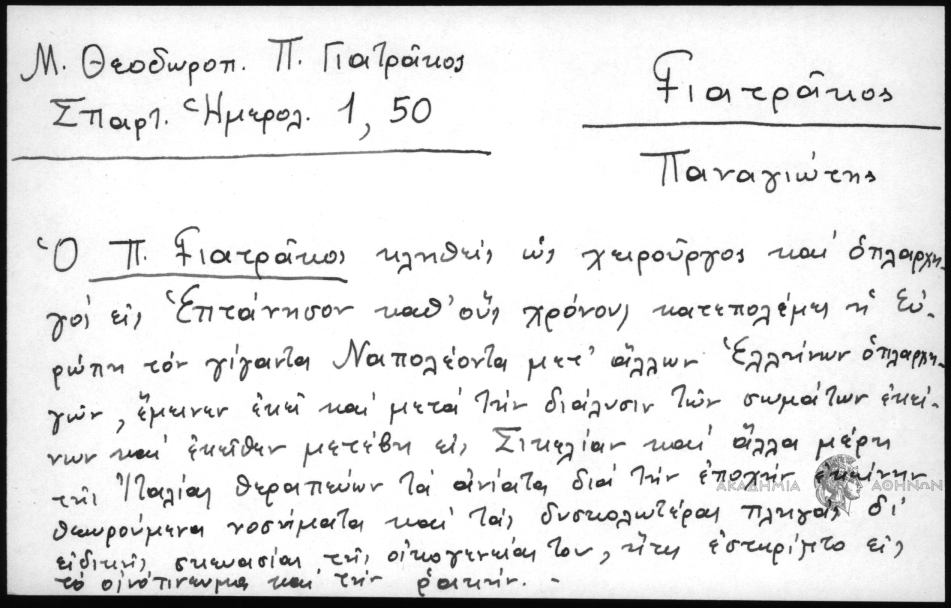 Μ. Θεοδωροπ. Π. Γιατρᾶκος
Σπαρτ. Ἡμερολ. 1, 50
Γιατρᾶκος
Παναγιώτης
Ὁ Π. Γιατρᾶκος κληθείς ὡς χειροῦργος καί ὁπλαρχη-
γός εἰς Ἑπτάνησον καθ' οὕς χρόνους κατεπολέμει ἡ Εὐ-
ρώπη τόν γίγαντα Ναπολέοντα μετ' ἄλλων Ἑλλήνων ὁπλαρχη-
γῶν, ἔμεινεν ἐκεῖ καί μετά τήν διάλυσιν τῶν σωμάτων ἐκεί-
νων καί ἐκεῖθεν μετέβη εἰς Σικελίαν καί ἄλλα μέρη
τῆς Ἰταλίας θεραπεύων τά ἀνίατα διά τήν ἐποχήν ἐκείνην
θεωρούμενα νοσήματα καί τάς δυσκολωτέρας πληγάς δι'
εἰδικῆς σκευασίας τῆς οἰκογενείας του, ἥτις ἐστηρίζετο εἰς
τό οἰνόπνευμα καί τήν ρακήν. -
ΑΚΑΔΗΜΙΑ ΑΘΗΝΩΝ